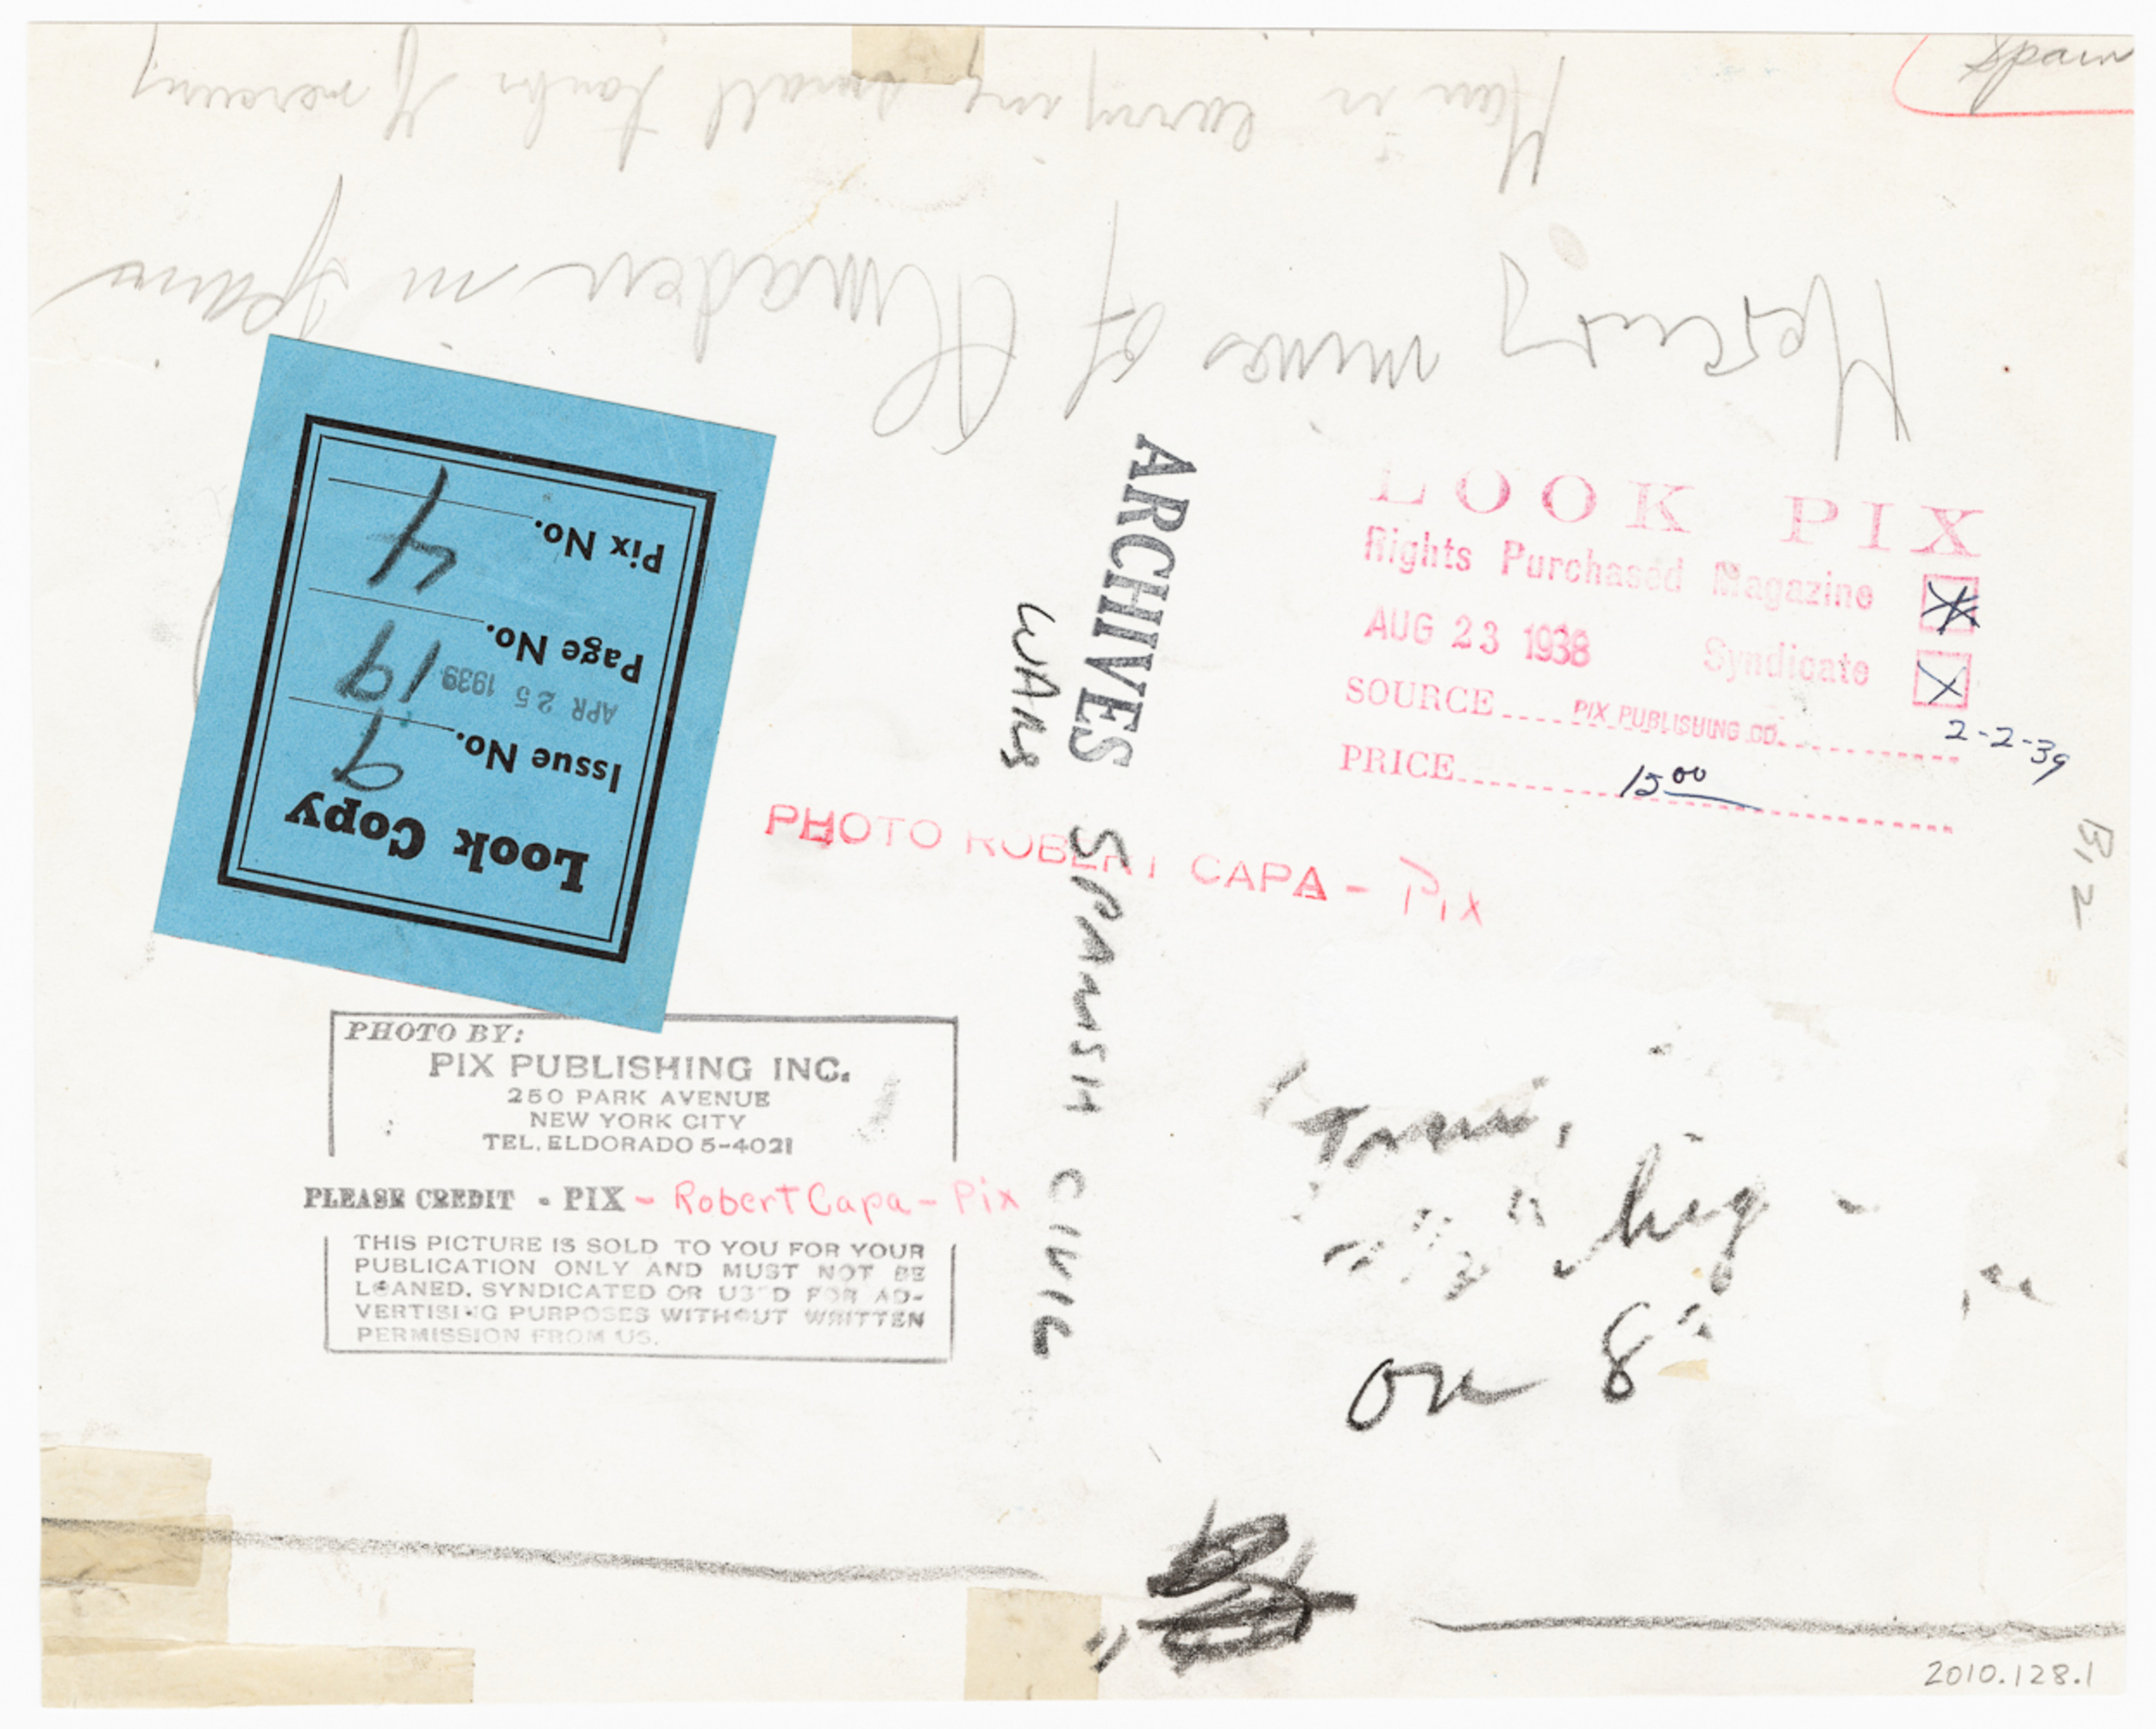 Spain
Man is carrying small tanks of mercury
Mercury mines of Almaden in Spain
Look Copy
Issue No. 9
APR 25 1939
Page No. 19
Pix No. 4
ARCHIVES
WARS
SPANISH CIVIL
LOOK PIX
Rights Purchased Magazine
AUG 23 1938 Syndicate
SOURCE PIX PUBLISHING CO.
2-2-39
PRICE 15 00
PHOTO ROBERT CAPA - Pix
B12
PHOTO BY:
PIX PUBLISHING INC.
250 PARK AVENUE
NEW YORK CITY
TEL. ELDORADO 5-4021
PLEASE CREDIT - PIX - Robert Capa - Pix
THIS PICTURE IS SOLD TO YOU FOR YOUR
PUBLICATION ONLY AND MUST NOT BE
LOANED, SYNDICATED OR USED FOR AD-
VERTISING PURPOSES WITHOUT WRITTEN
PERMISSION FROM US.
on 8
2010.128.1